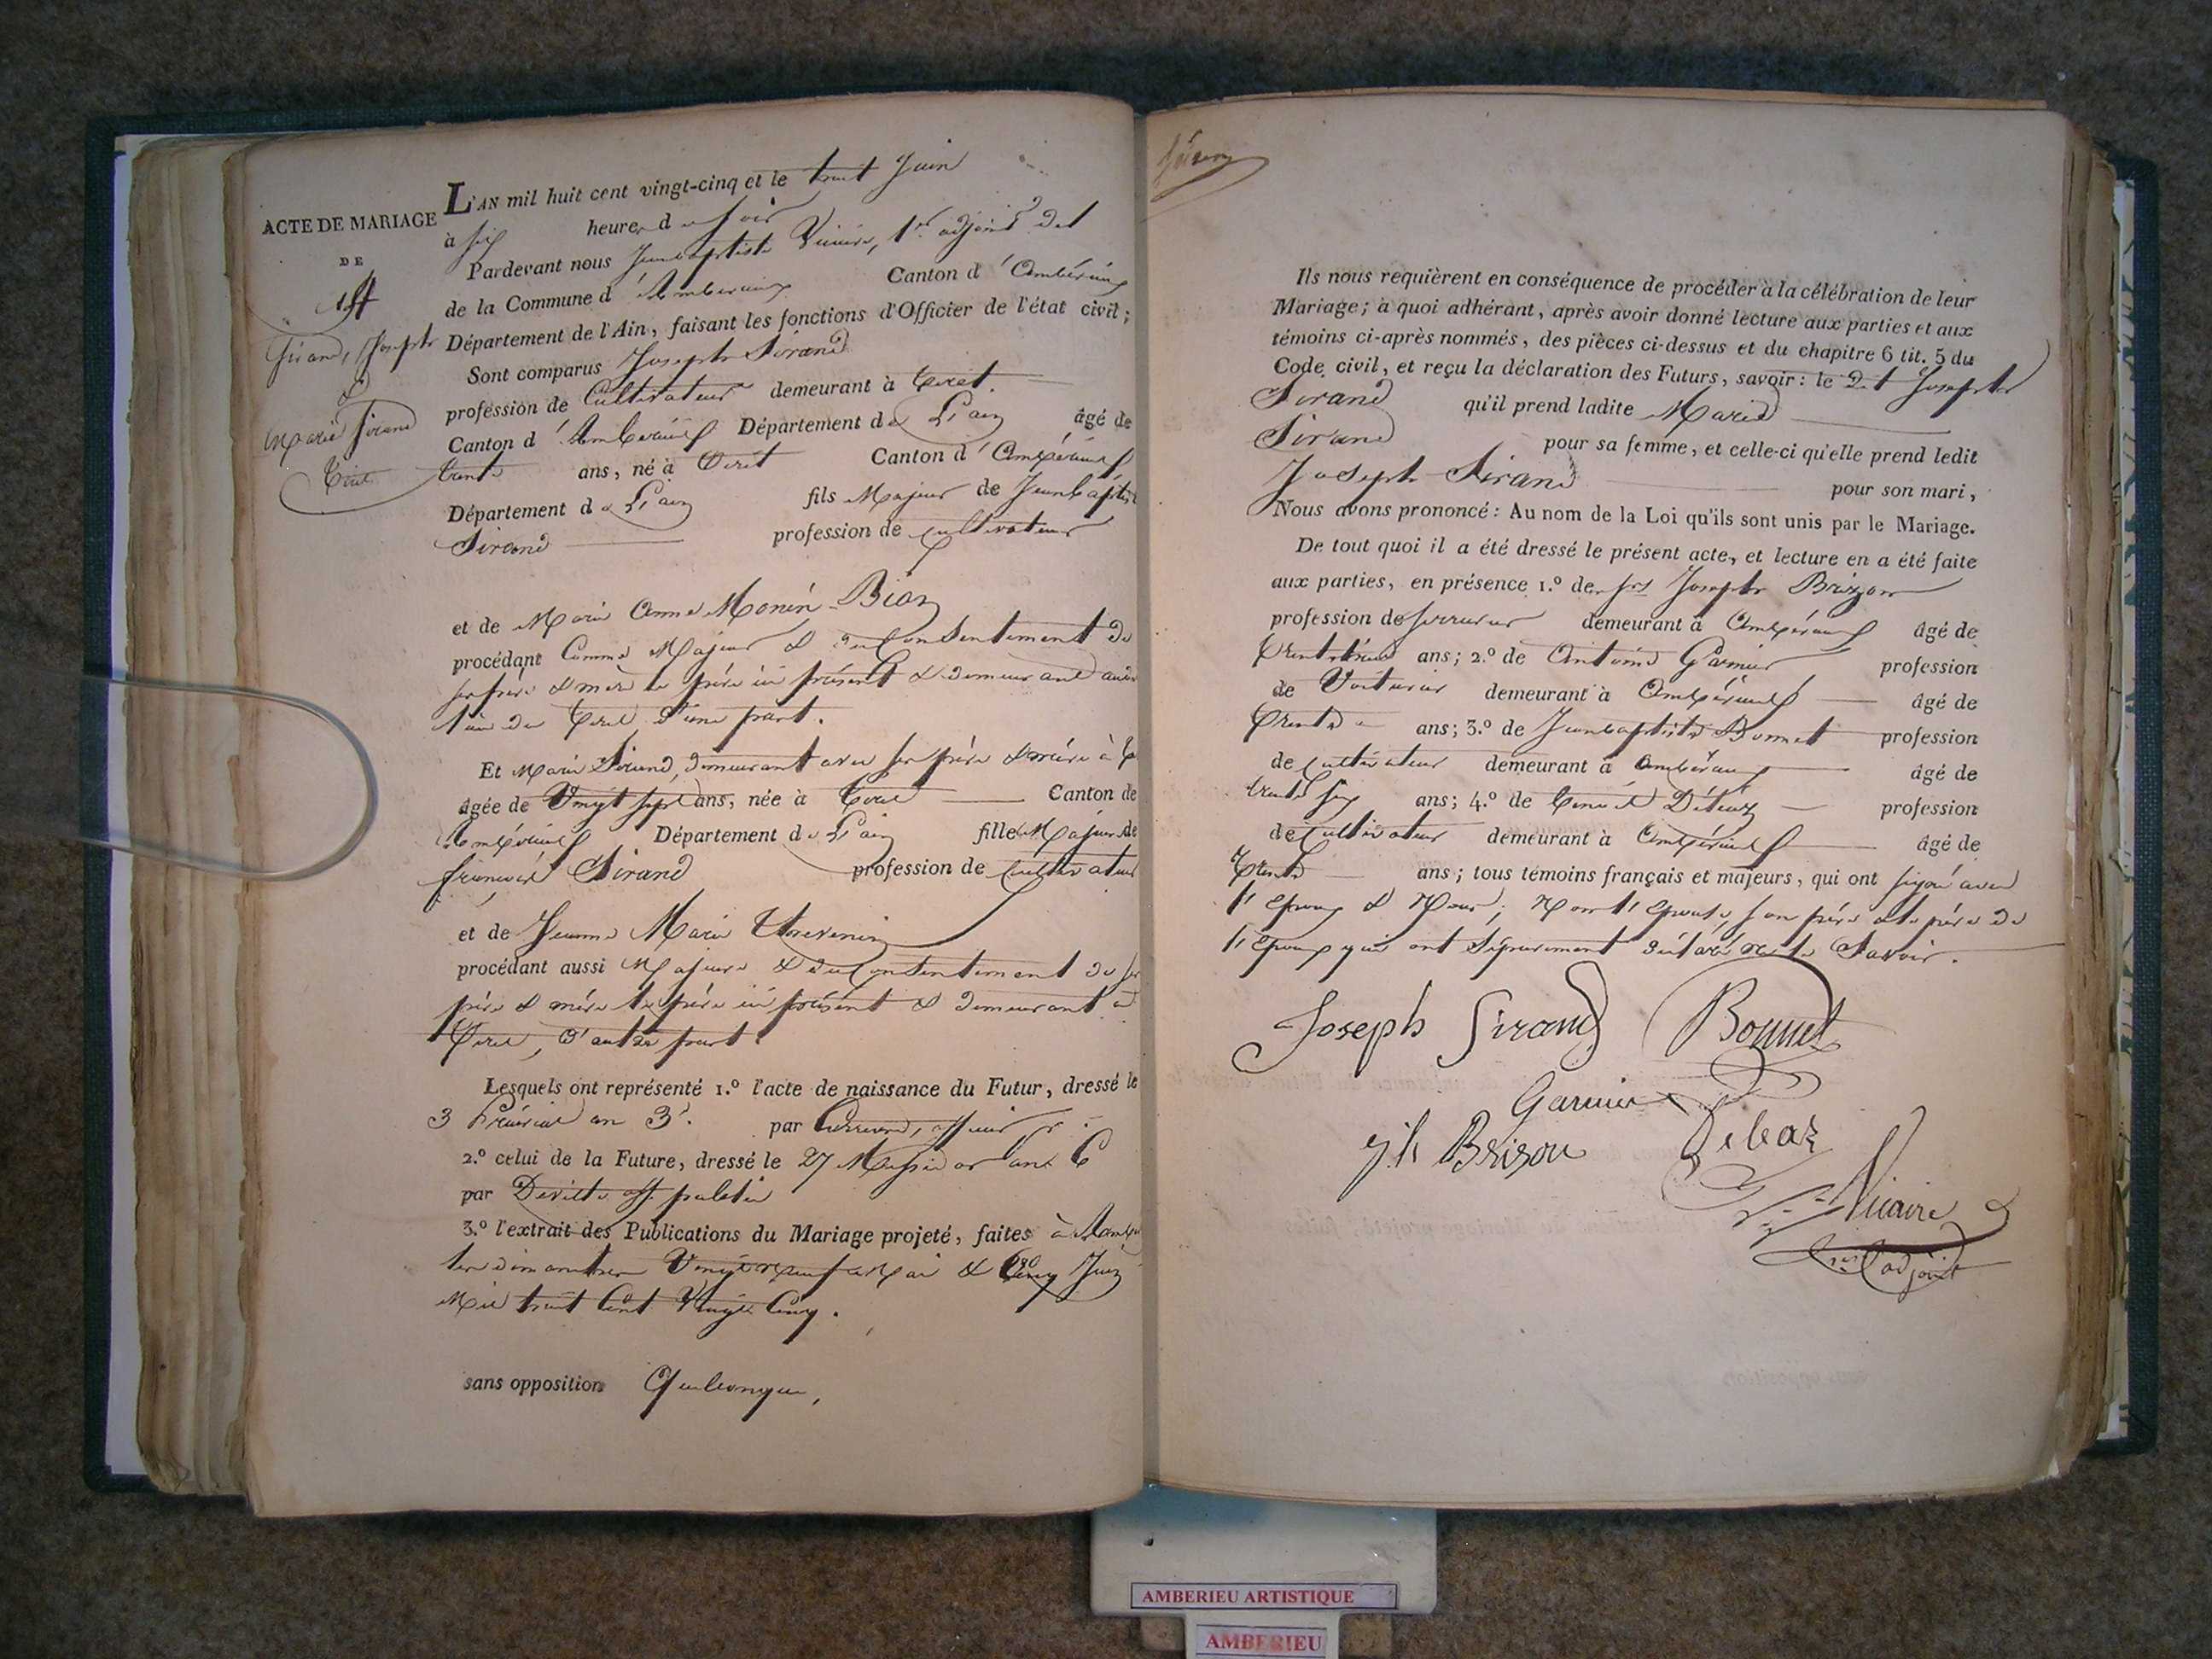 ACTE DE MARIAGE
DE
Sirand, Joseph
&
Marie Sirand
Tiret
L'AN mil huit cent vingt-cinq et le huit Juin
à six heures du soir
Pardevant nous Jeanbaptiste Vicaire, 1er adjoint
de la Commune d'Ambérieux Canton d'Ambérieux
Département de l'Ain, faisant les fonctions d'Officier de l'état civil;
Sont comparus Joseph Sirand
profession de Cultivateur demeurant à Tiret.
Canton d'Ambérieux Département de L'ain âgé de
trente ans, né à Tiret Canton d'Ambérieux
Département de L'ain fils Majeur de Jeanbaptiste
Sirand profession de cultivateur
et de Marie Anne Monin-Bian
procédant Comme Majeur & du Consentement de
ses père & mère le père ici présent & demeurant
de Tiret d'une part.
Et Marie Sirand, demeurant avec ses père & mère à
âgée de Vingt sept ans, née à Tiret Canton de
Ambérieux Département de L'ain fille Majeure de
françois Sirand profession de Cultivateur
et de Jeanne Marie Thevenin
procédant aussi Majeure & du Consentement de ses
père & mère le père ici présent & demeurant à
Tiret, d'autre part
Lesquels ont représenté 1.º l'acte de naissance du Futur, dressé le
3 Prairial an 3e. par officier
2.º celui de la Future, dressé le 27 Messidor an 6
par off. public
3.º l'extrait des Publications du Mariage projeté, faites à
les dimanches Vingt neuf Mai & Cinq Juin
Mil huit Cent Vingt Cinq.
sans opposition Quelconque,
Ils nous requièrent en conséquence de procéder à la célébration de leur
Mariage; à quoi adhérant, après avoir donné lecture aux parties et aux
témoins ci-après nommés, des pièces ci-dessus et du chapitre 6 tit. 5 du
Code civil, et reçu la déclaration des Futurs, savoir: le dit Joseph
Sirand qu'il prend ladite Marie
Sirand pour sa femme, et celle-ci qu'elle prend ledit
Joseph Sirand pour son mari,
Nous avons prononcé: Au nom de la Loi qu'ils sont unis par le Mariage.
De tout quoi il a été dressé le présent acte, et lecture en a été faite
aux parties, en présence 1.º de srs Joseph Brizon
profession de serrurier demeurant à Ambérieux âgé de
ans; 2.º de Antoine Garnier profession
de Voiturier demeurant à Ambérieux âgé de
Trente ans; 3.º de Jeanbaptiste Bonnet profession
de cultivateur demeurant à Ambérieux âgé de
trente six ans; 4.º de Benoit Debeaz profession
de Cultivateur demeurant à Ambérieux âgé de
Trente ans; tous témoins français et majeurs, qui ont signé avec
l'Epoux & Nous; Non l'Epouse, son père et le père de
l'Epoux qui ont Séparément déclaré ne le Savoir.
Joseph Sirand Bonnet
Garnier
Brison Debeaz
Vicaire
1er adjoint
AMBERIEU ARTISTIQUE
AMBERIEU